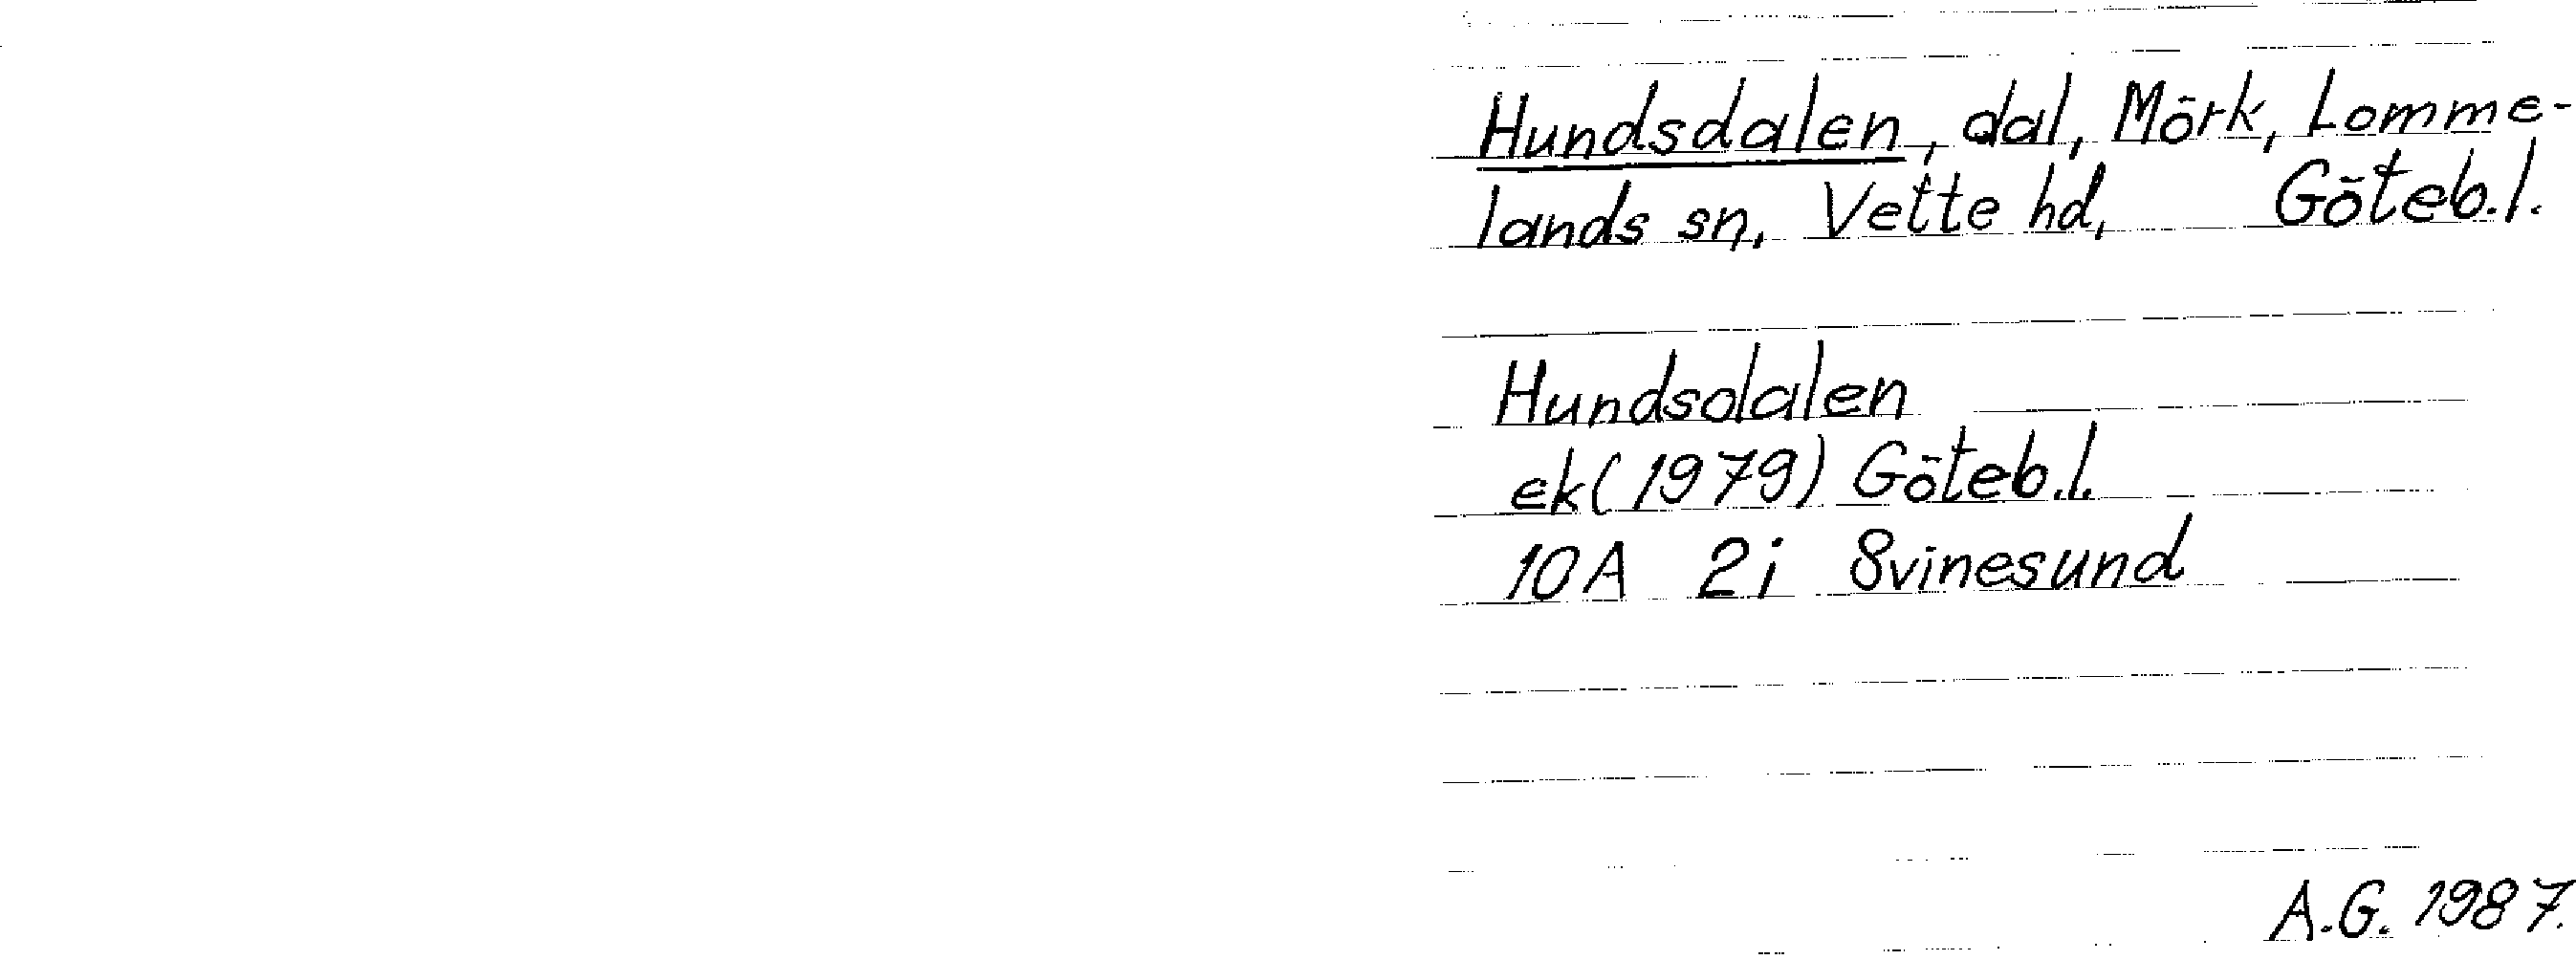 Hundsdalen, dal, Mörk, Lomme-
lands sn, Vette hd, Göteb.l.
Hundsdalen
ek (1979) Göteb.l.
10A 2i Svinesund
A.G. 1987.